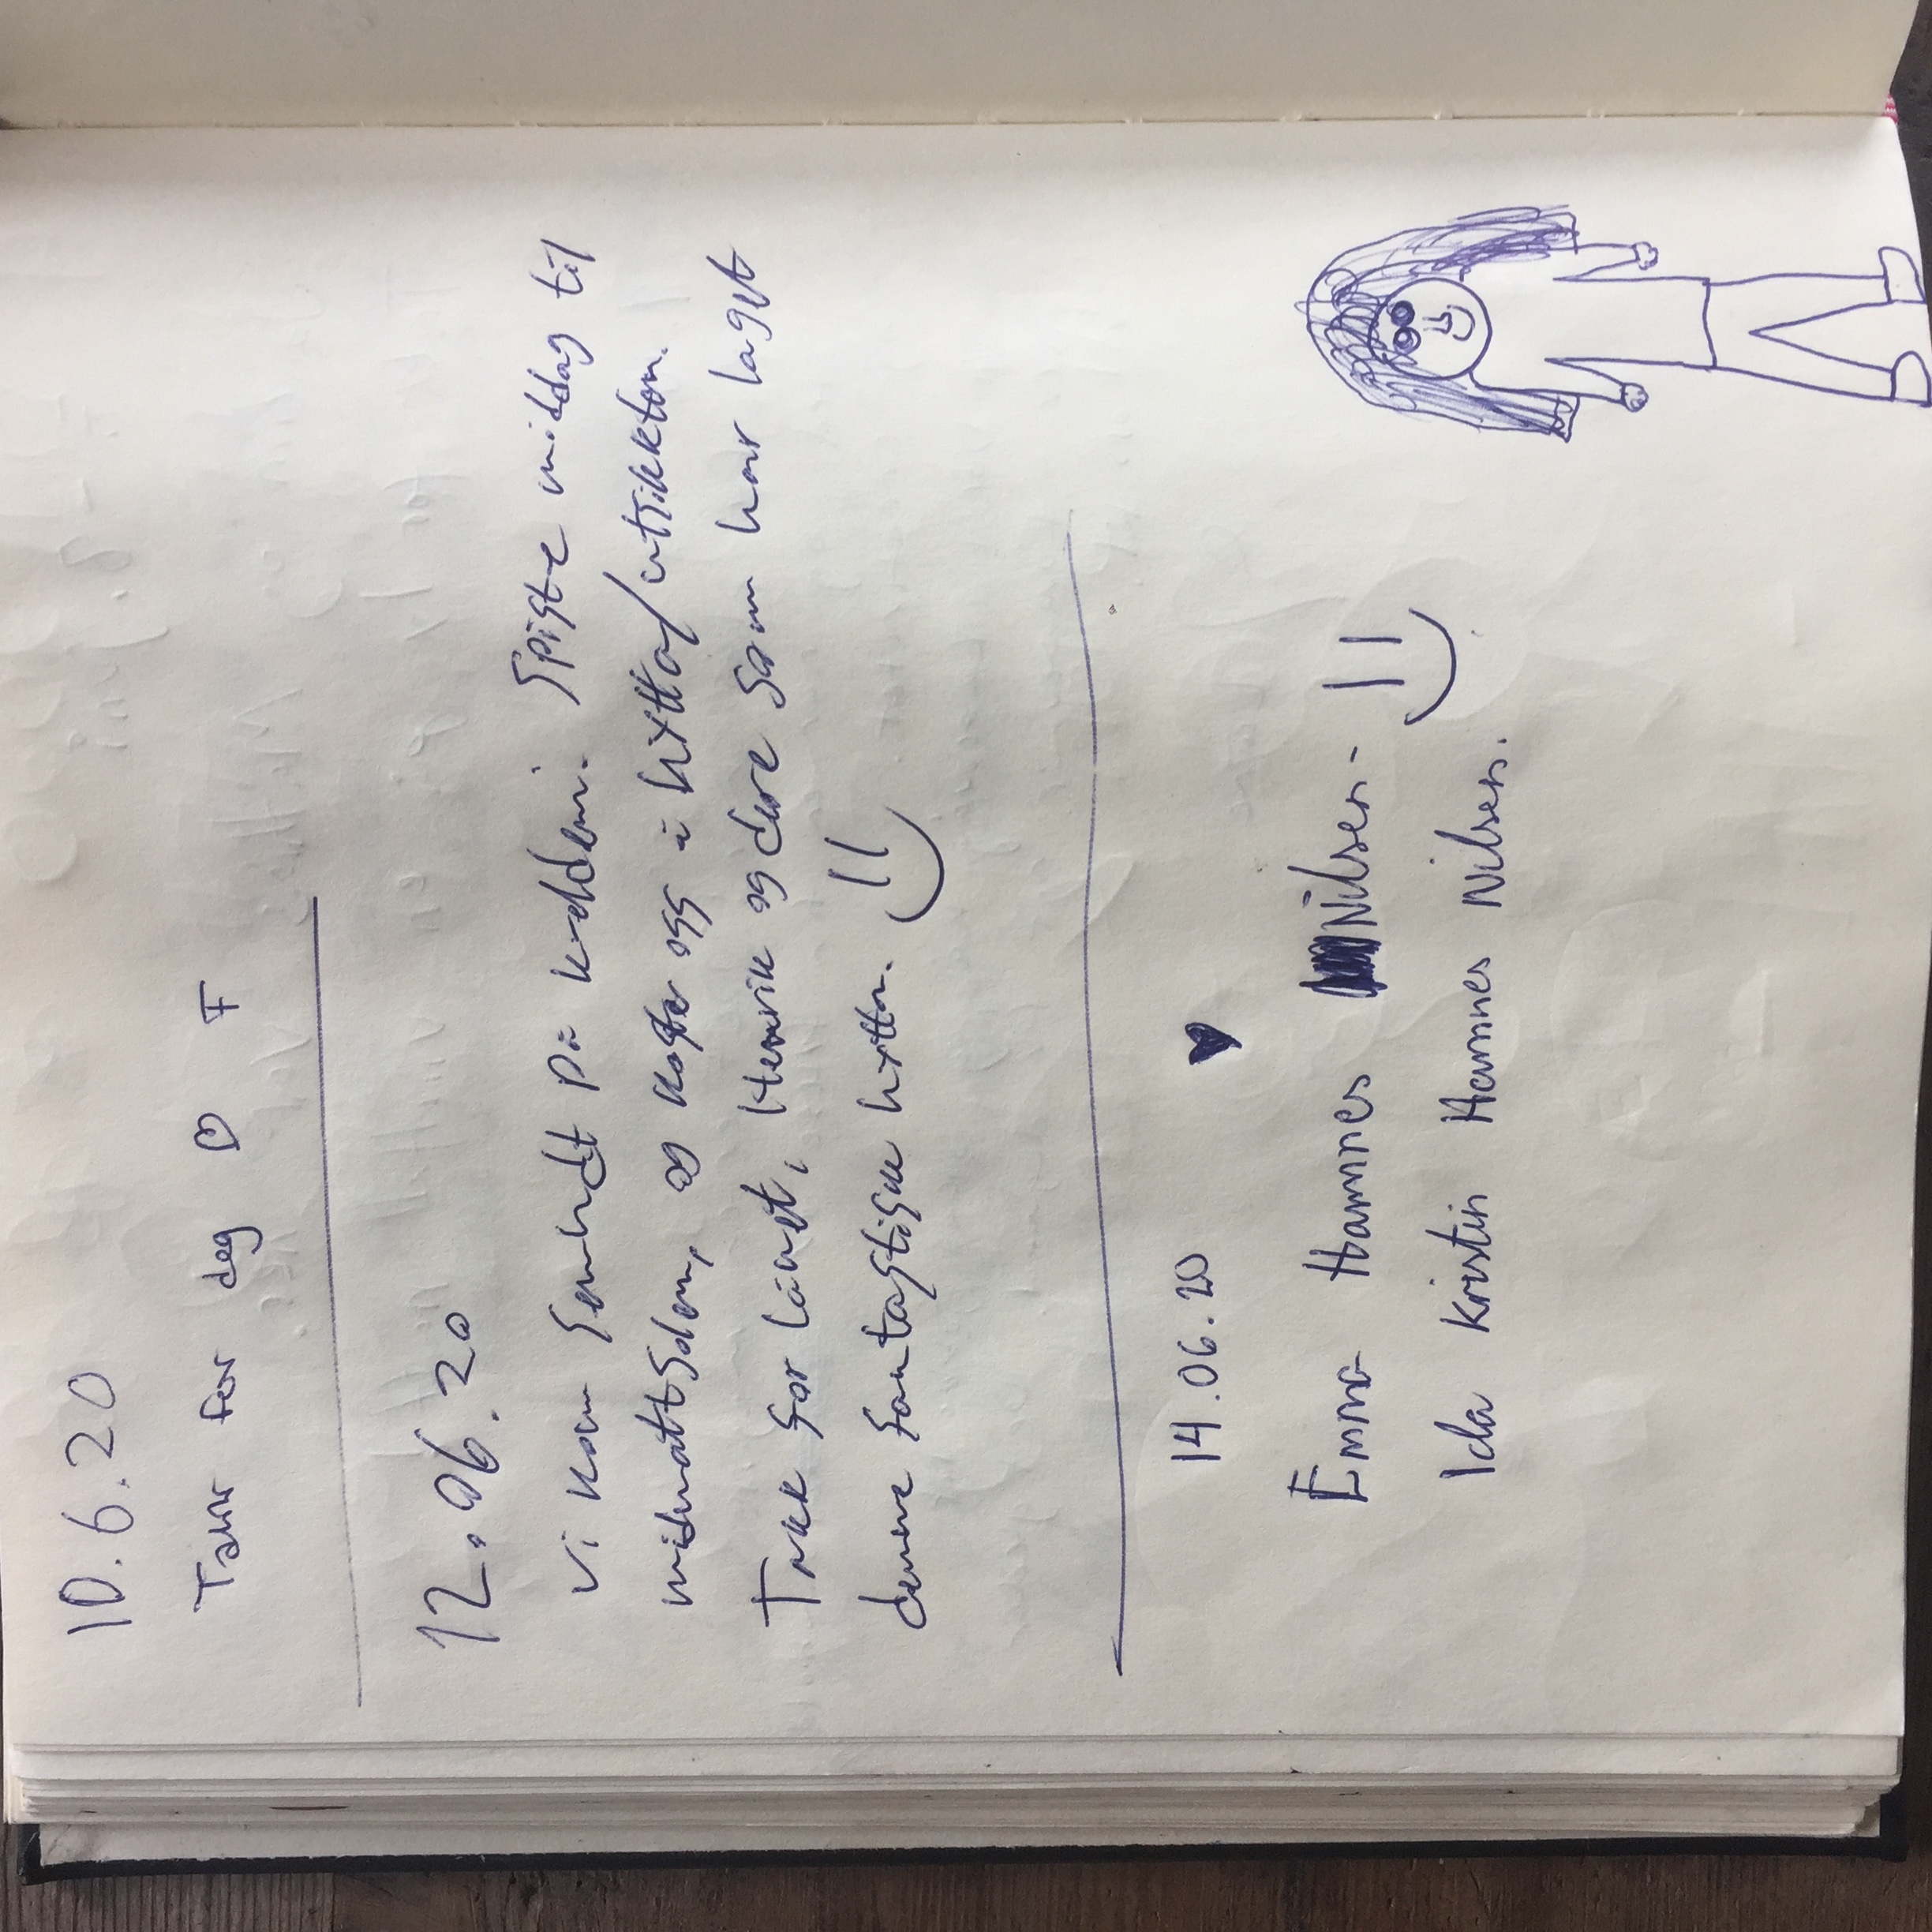 10.6.20
Takk for deg ♡ F
12.06.20
Vi kom sendt på kvelden. Spiste middag til
midnattsolen, og koste oss i hytta/utsikkten.
Takk for lånet, Henrik og dere som har laget
denne fantastiske hytta.
14.06.20 ♥
Emma Hamnes Nilsen-
Ida Kristin Hamnes Nilsen.